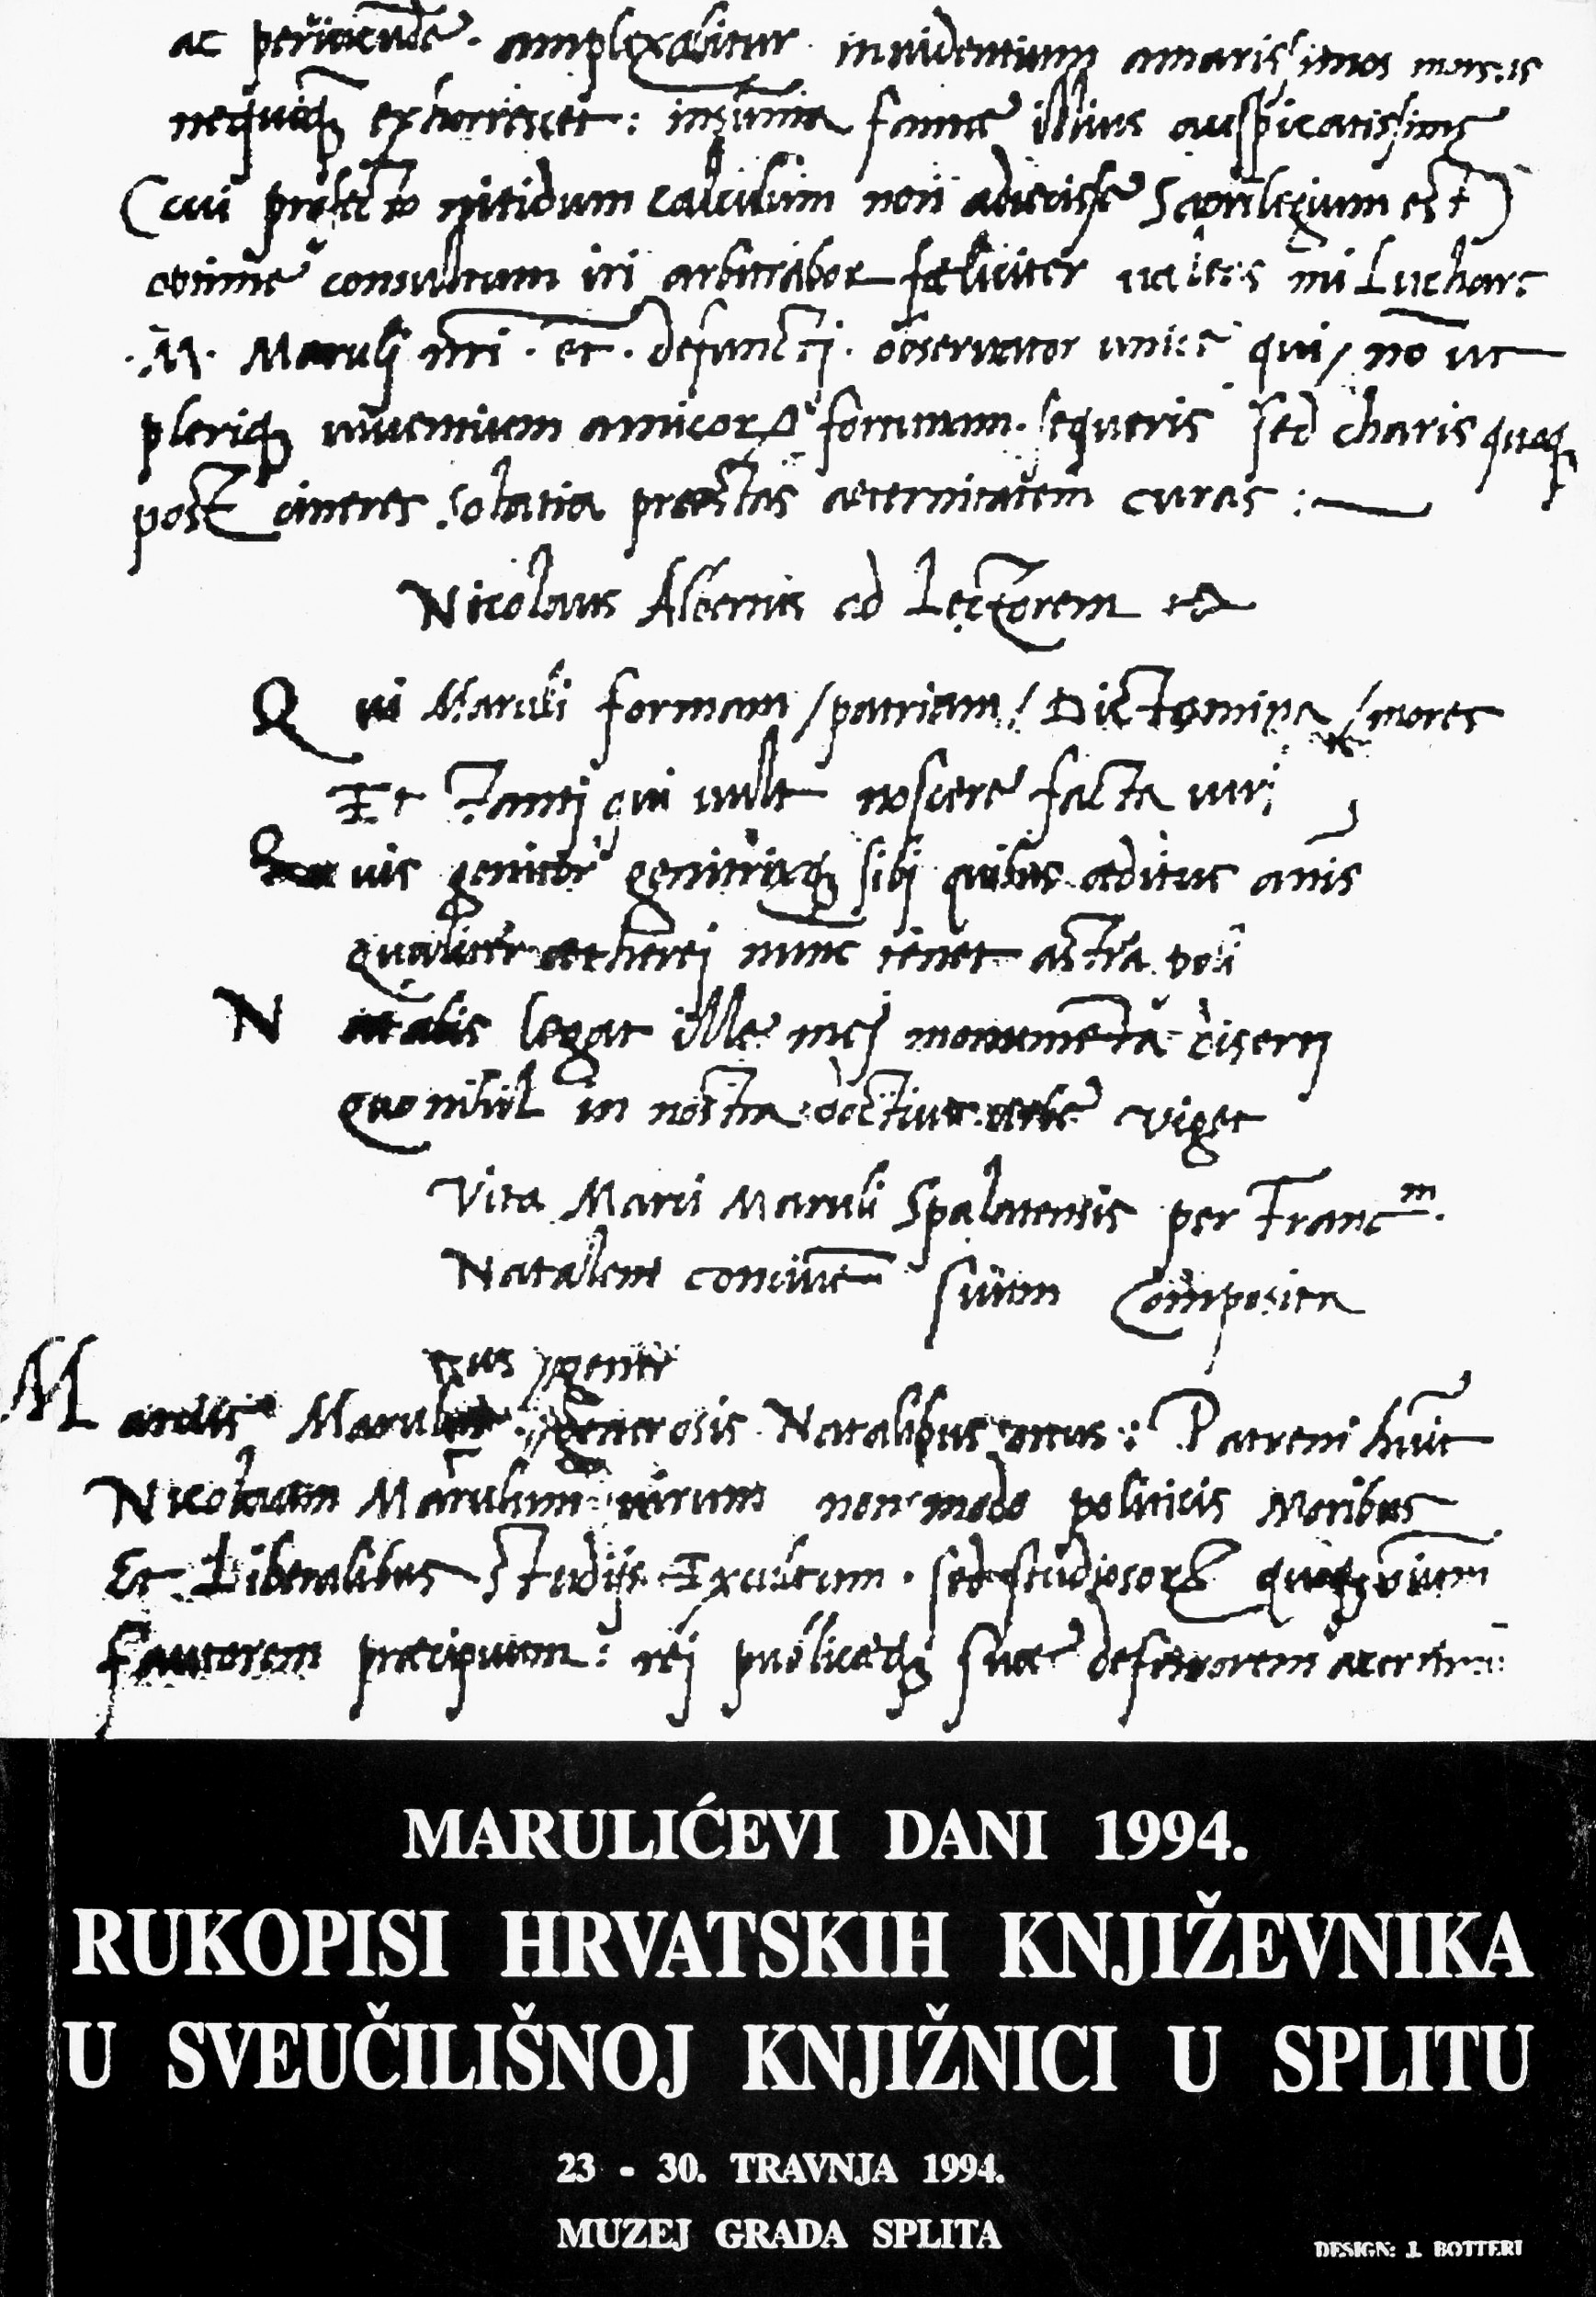 ac periucũde amplexabitur inuidentium amarissimos morsus
nequaq; exhorrescet: fame illius auspicatissime
(cui profecto nitidum calculum non adiecisse Sacrilegium est)
optime consultum iri arbitrabor fœliciter ualeas mi Luchare
.M. Marulj nři et defunctj obseruator unice qui / nō ut
pleriq; uiuentium amicorꝝ fortunam sequeris sed charis quoq;
post cineres solatia præstas æternitatem curas :
Nicolaus Albertus ad Lectorem
Qui Maruli formam / patriam / Dictamina / mores
Et Tantj qui uult noscere facta uirj
Quis genitor genitrixq; sibj quibus æditus anis
qualiter ætherej nunc tenet astra poli
Natalis legat ille mej monumēta disertj
quo nihil in nostra doctius urbe viget
Vita Marci Maruli Spalatensis per Franc^m.
Natalem conciuē suum Composita
gente
Marcus Marulus generosis Natalibus ortus : Patrem huic
Nicolaum Marulum uirum non modo politicis Moribus
Et Liberalibus Studijs Excultum . sed studiosorꝝ quoq; oium
fautorem præcipuum : rej publicæq; suæ defensorem acerrimum
MARULIĆEVI DANI 1994.
RUKOPISI HRVATSKIH KNJIŽEVNIKA
U SVEUČILIŠNOJ KNJIŽNICI U SPLITU
23 - 30. TRAVNJA 1994.
MUZEJ GRADA SPLITA
DESIGN: J. BOTTERI